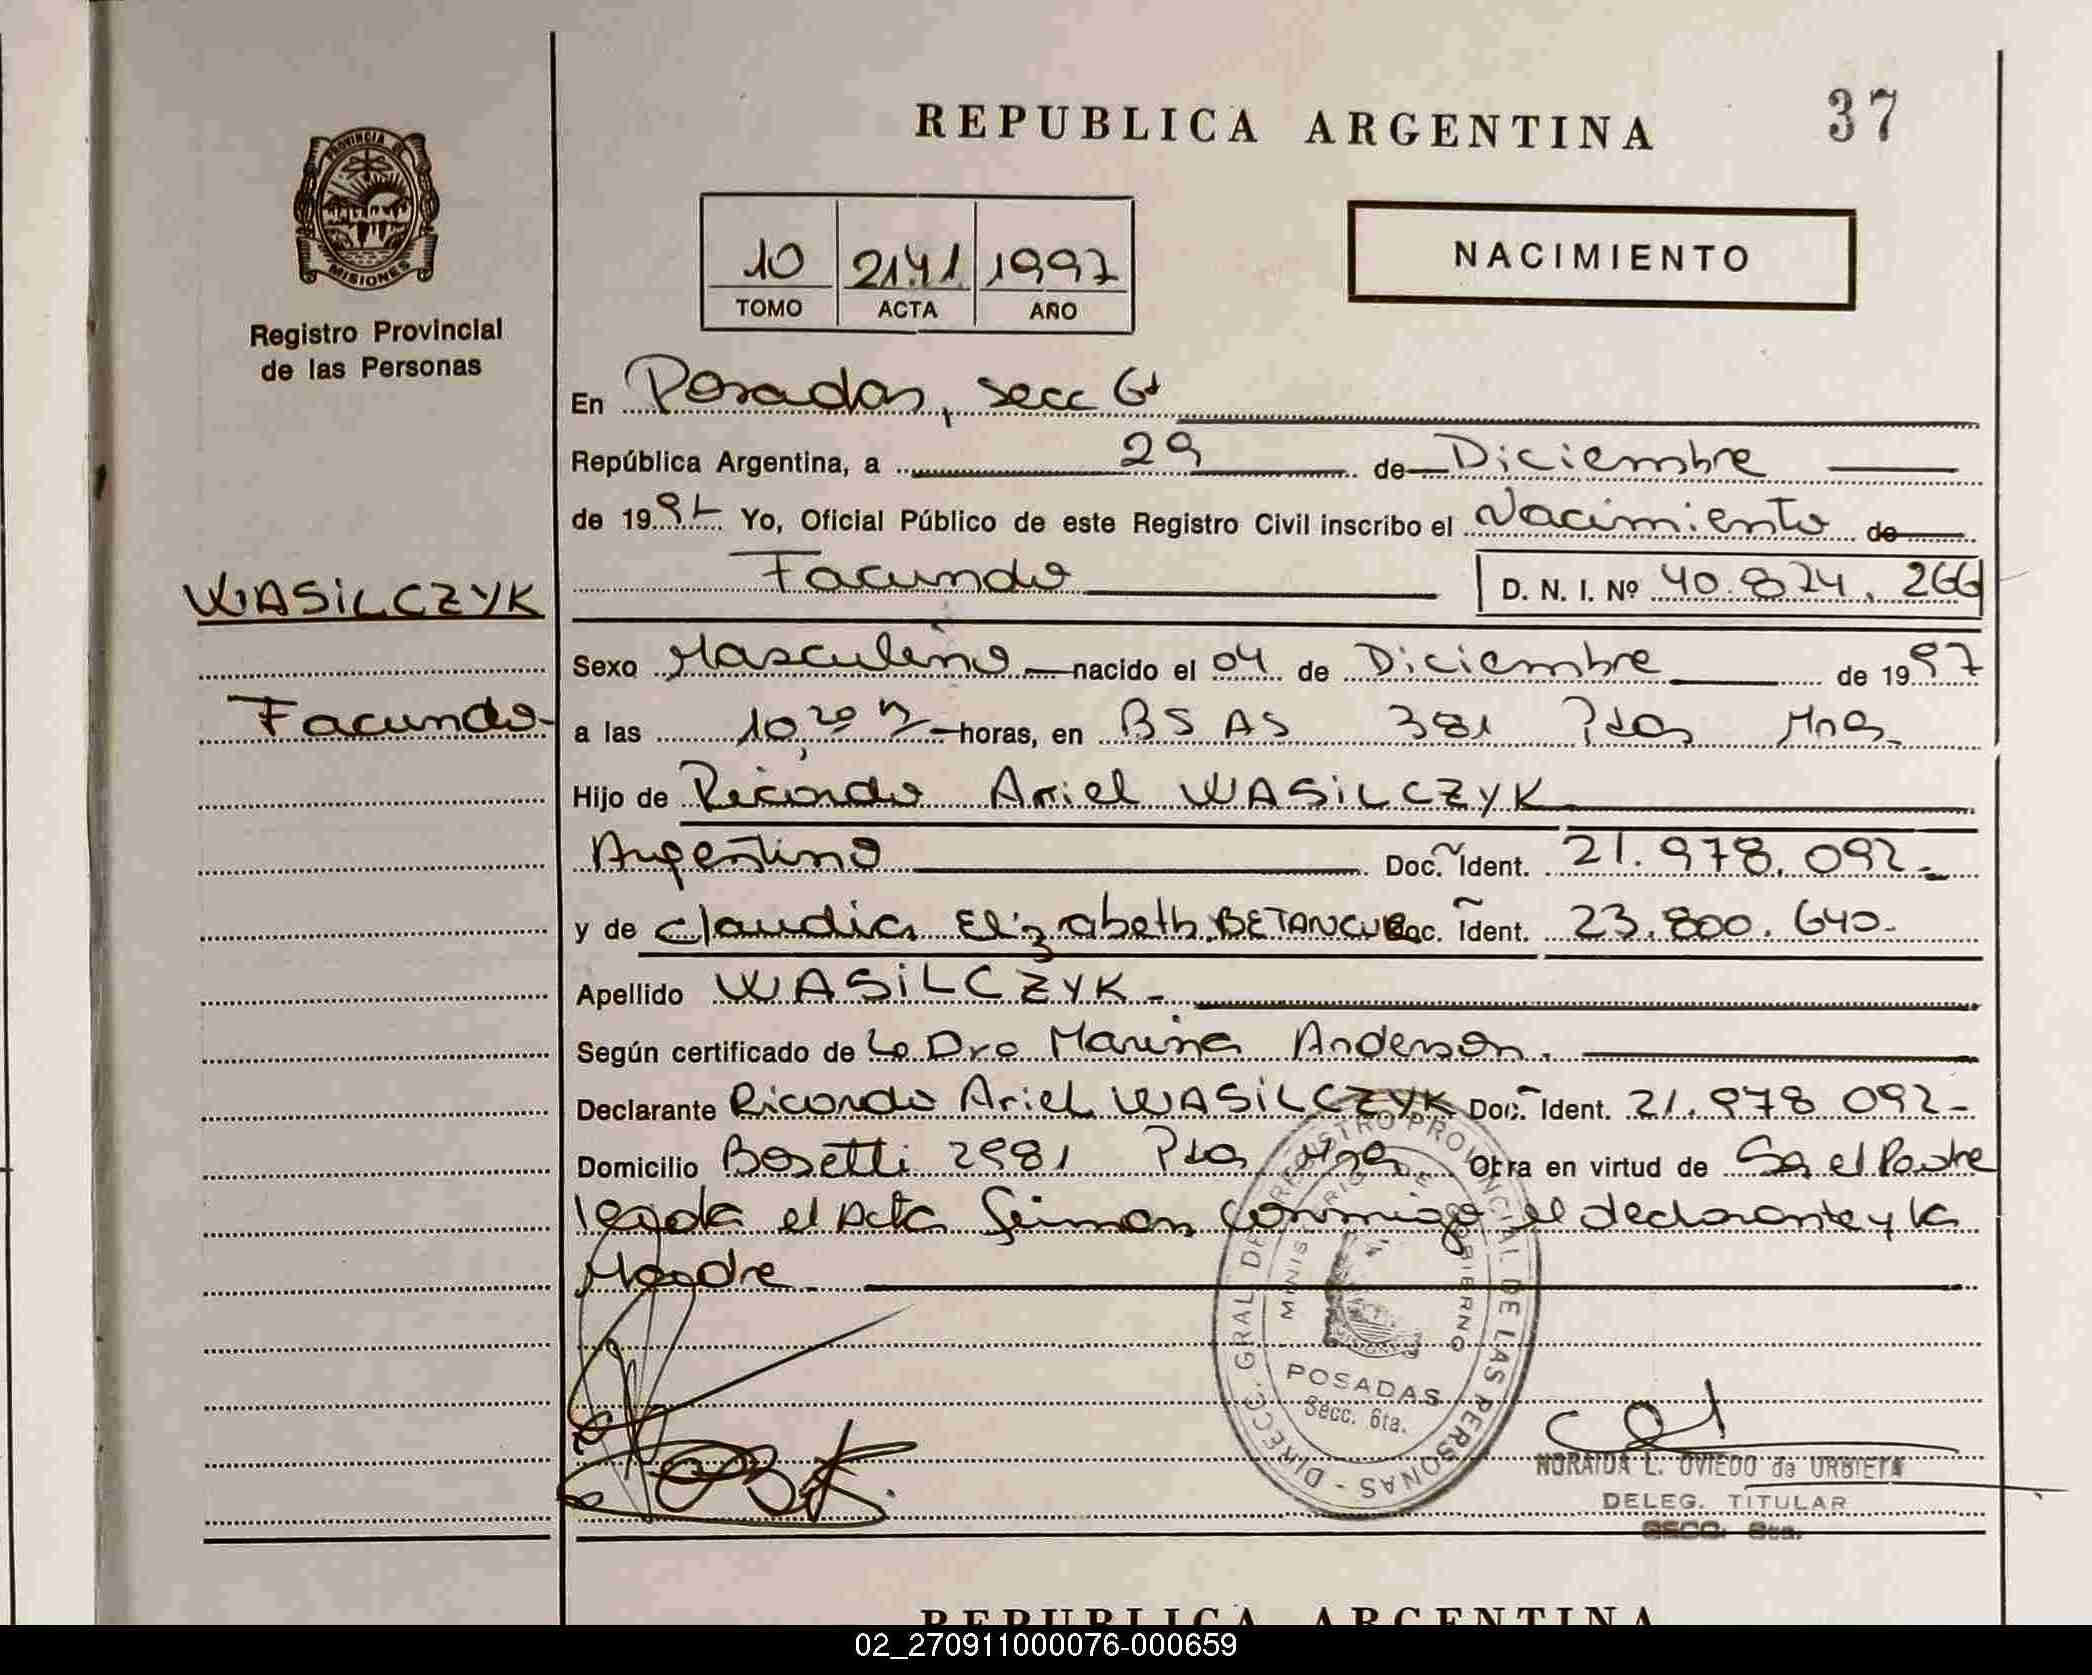 REPUBLICA ARGENTINA
37
PROVINCIA DE
MISIONES
Registro Provincial
de las Personas
10 2141 1997
TOMO ACTA AÑO
NACIMIENTO
En Posadas, secc 6ª
República Argentina, a 29 de Diciembre
de 1997 Yo, Oficial Público de este Registro Civil inscribo el Nacimiento de
Facundo D. N. I. Nº 40.874.266
WASiLCZYK
Sexo Masculino nacido el 04 de Diciembre de 1997
Facundo
a las 10,20 horas, en BS AS 381 Pdas Mnes
Hijo de Ricardo Ariel WASiLCZYK
Argentino Doc. Ident. 21.978.092-
y de Claudia Elizabeth BETANCUR Doc. Ident. 23.800.640-
Apellido WASiLCZYK-
Según certificado de La Dra Marina Anderson.
Declarante Ricardo Ariel WASiLCZYK Doc. Ident. 21.978 092-
Domicilio Bosetti 2981 Pdas Mnes Obra en virtud de Se el Padre
leyda el Acta firman conmigo el declarante y la
Madre
DIRECC. GRAL. DE REGISTRO PROVINCIAL DE LAS PERSONAS -
MINISTERIO DE GOBIERNO
POSADAS
Secc. 6ta.
NORAIDA L. OVIEDO de URBIETA
DELEG. TITULAR
SECC. 6ta.
REPUBLICA ARGENTINA
02_270911000076-000659